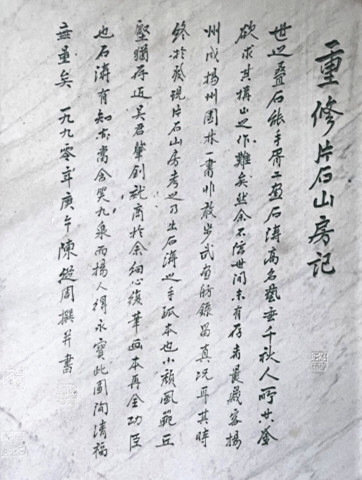 重修片石山房記
世之疊石能手胥工畫石濤高名藝垂千秋人所共
欲求其構山之作難矣然余不信世間未有存者曩歲客揚
州成揚州園林一書非敢步武畫舫錄留真况耳其時
終於發現片石山房考之乃出石濤之手孤本也小頹風範丘
壑猶存近吳君肇釗就商於余細心復筆畫本再全功臣
也石濤有知亦當含笑九泉而揚人得永寶此園洵清福
無量矣 一九九零年庚午陳從周撰并書